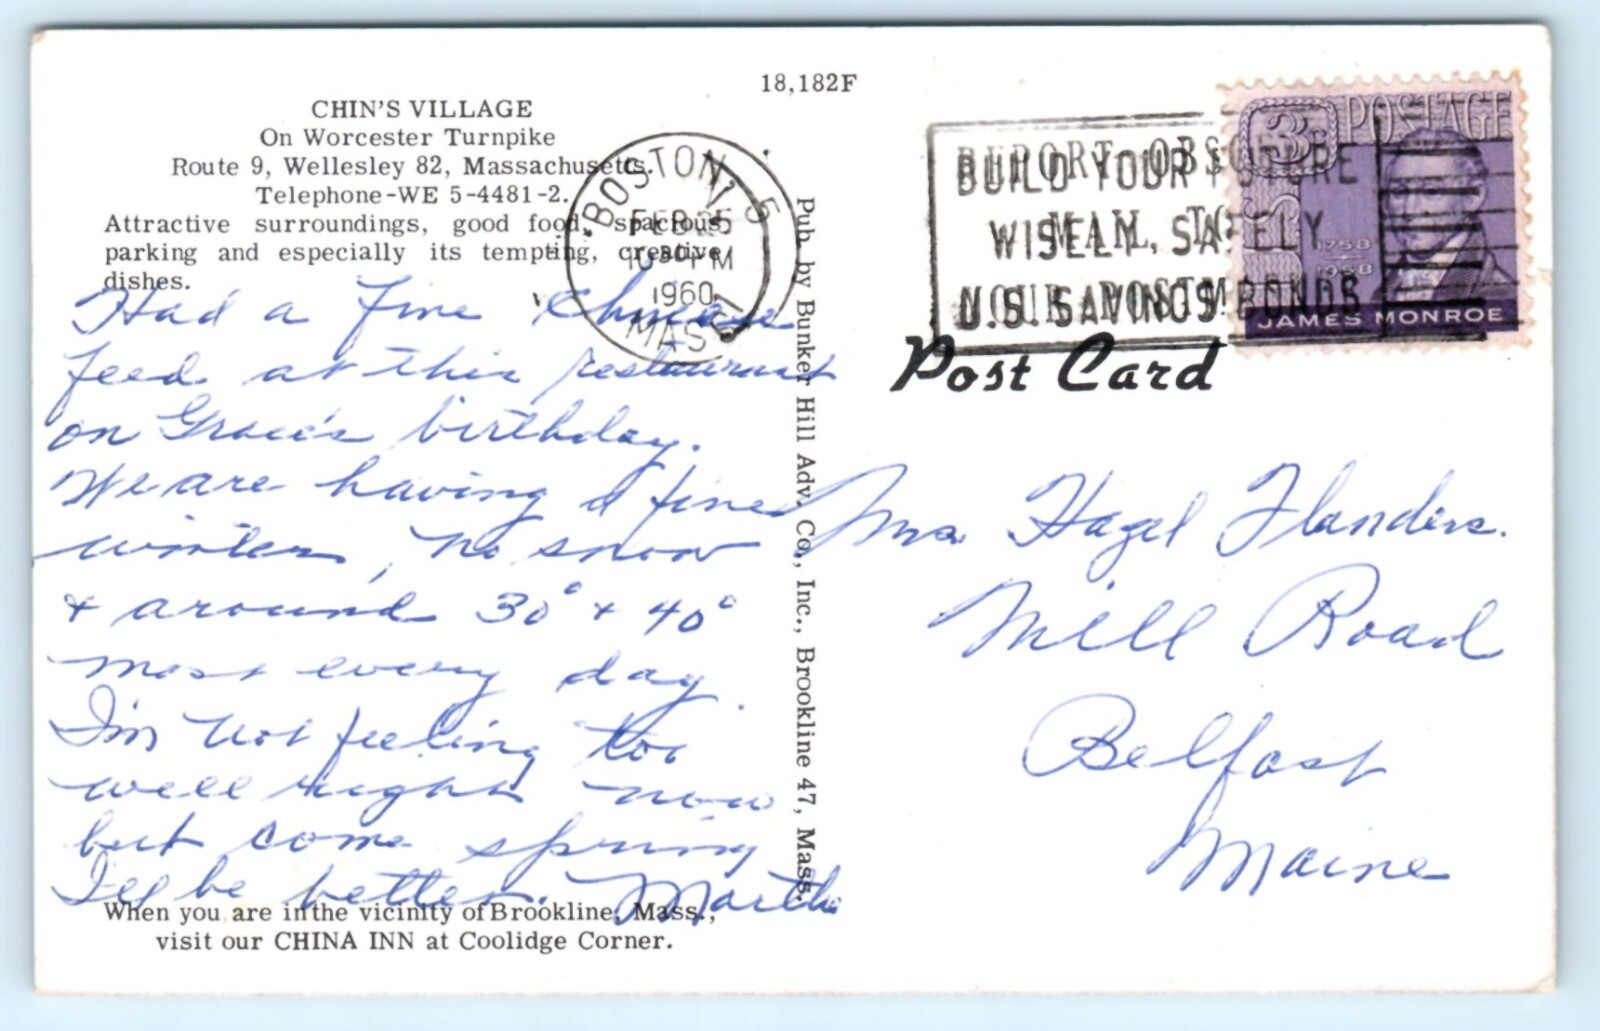 18,182F
CHIN'S VILLAGE
On Worcester Turnpike
Route 9, Wellesley 82, Massachusetts.
Telephone-WE 5-4481-2.
Attractive surroundings, good food, spacious
parking and especially its tempting, creative
dishes.
Had a fine Chinese
feed at this restaurant
on Grace's birthday.
We are having a fine
winter, no snow
+ around 30° + 40°
most every day.
I'm not feeling too
well right now
but come spring
I'll be better. Martha
When you are in the vicinity of Brookline, Mass.,
visit our CHINA INN at Coolidge Corner.
BOSTON 5
FEB 25
PM
1960
MASS
Pub. by Bunker Hill Adv. Co., Inc., Brookline 47, Mass.
BUILD YOUR FUTURE
WISELY, SAFELY
U.S. SAVINGS BONDS
REPORT OBSCENE
MAIL TO
YOUR POSTMASTER
3¢ POSTAGE
1758
1958
JAMES MONROE
Post Card
Mrs. Hazel Flanders.
Mill Road
Belfast
Maine